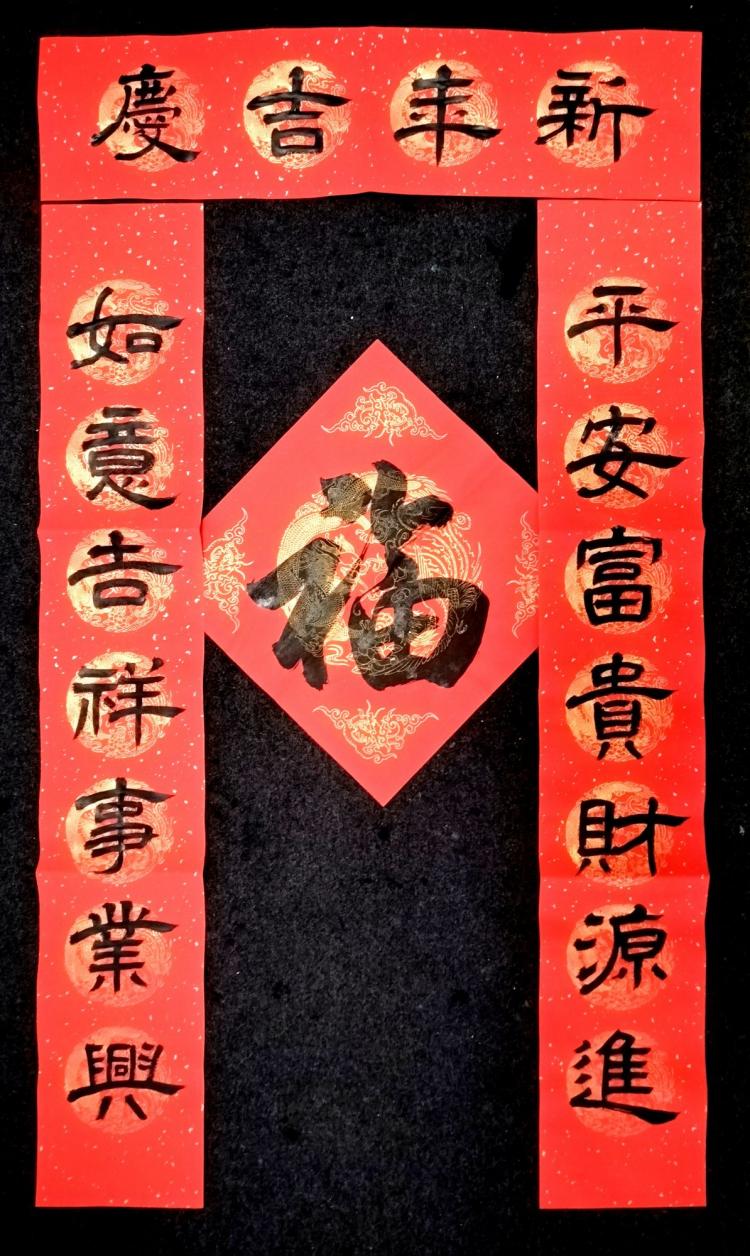 新年吉慶
平安富貴財源進
如意吉祥事業興
福